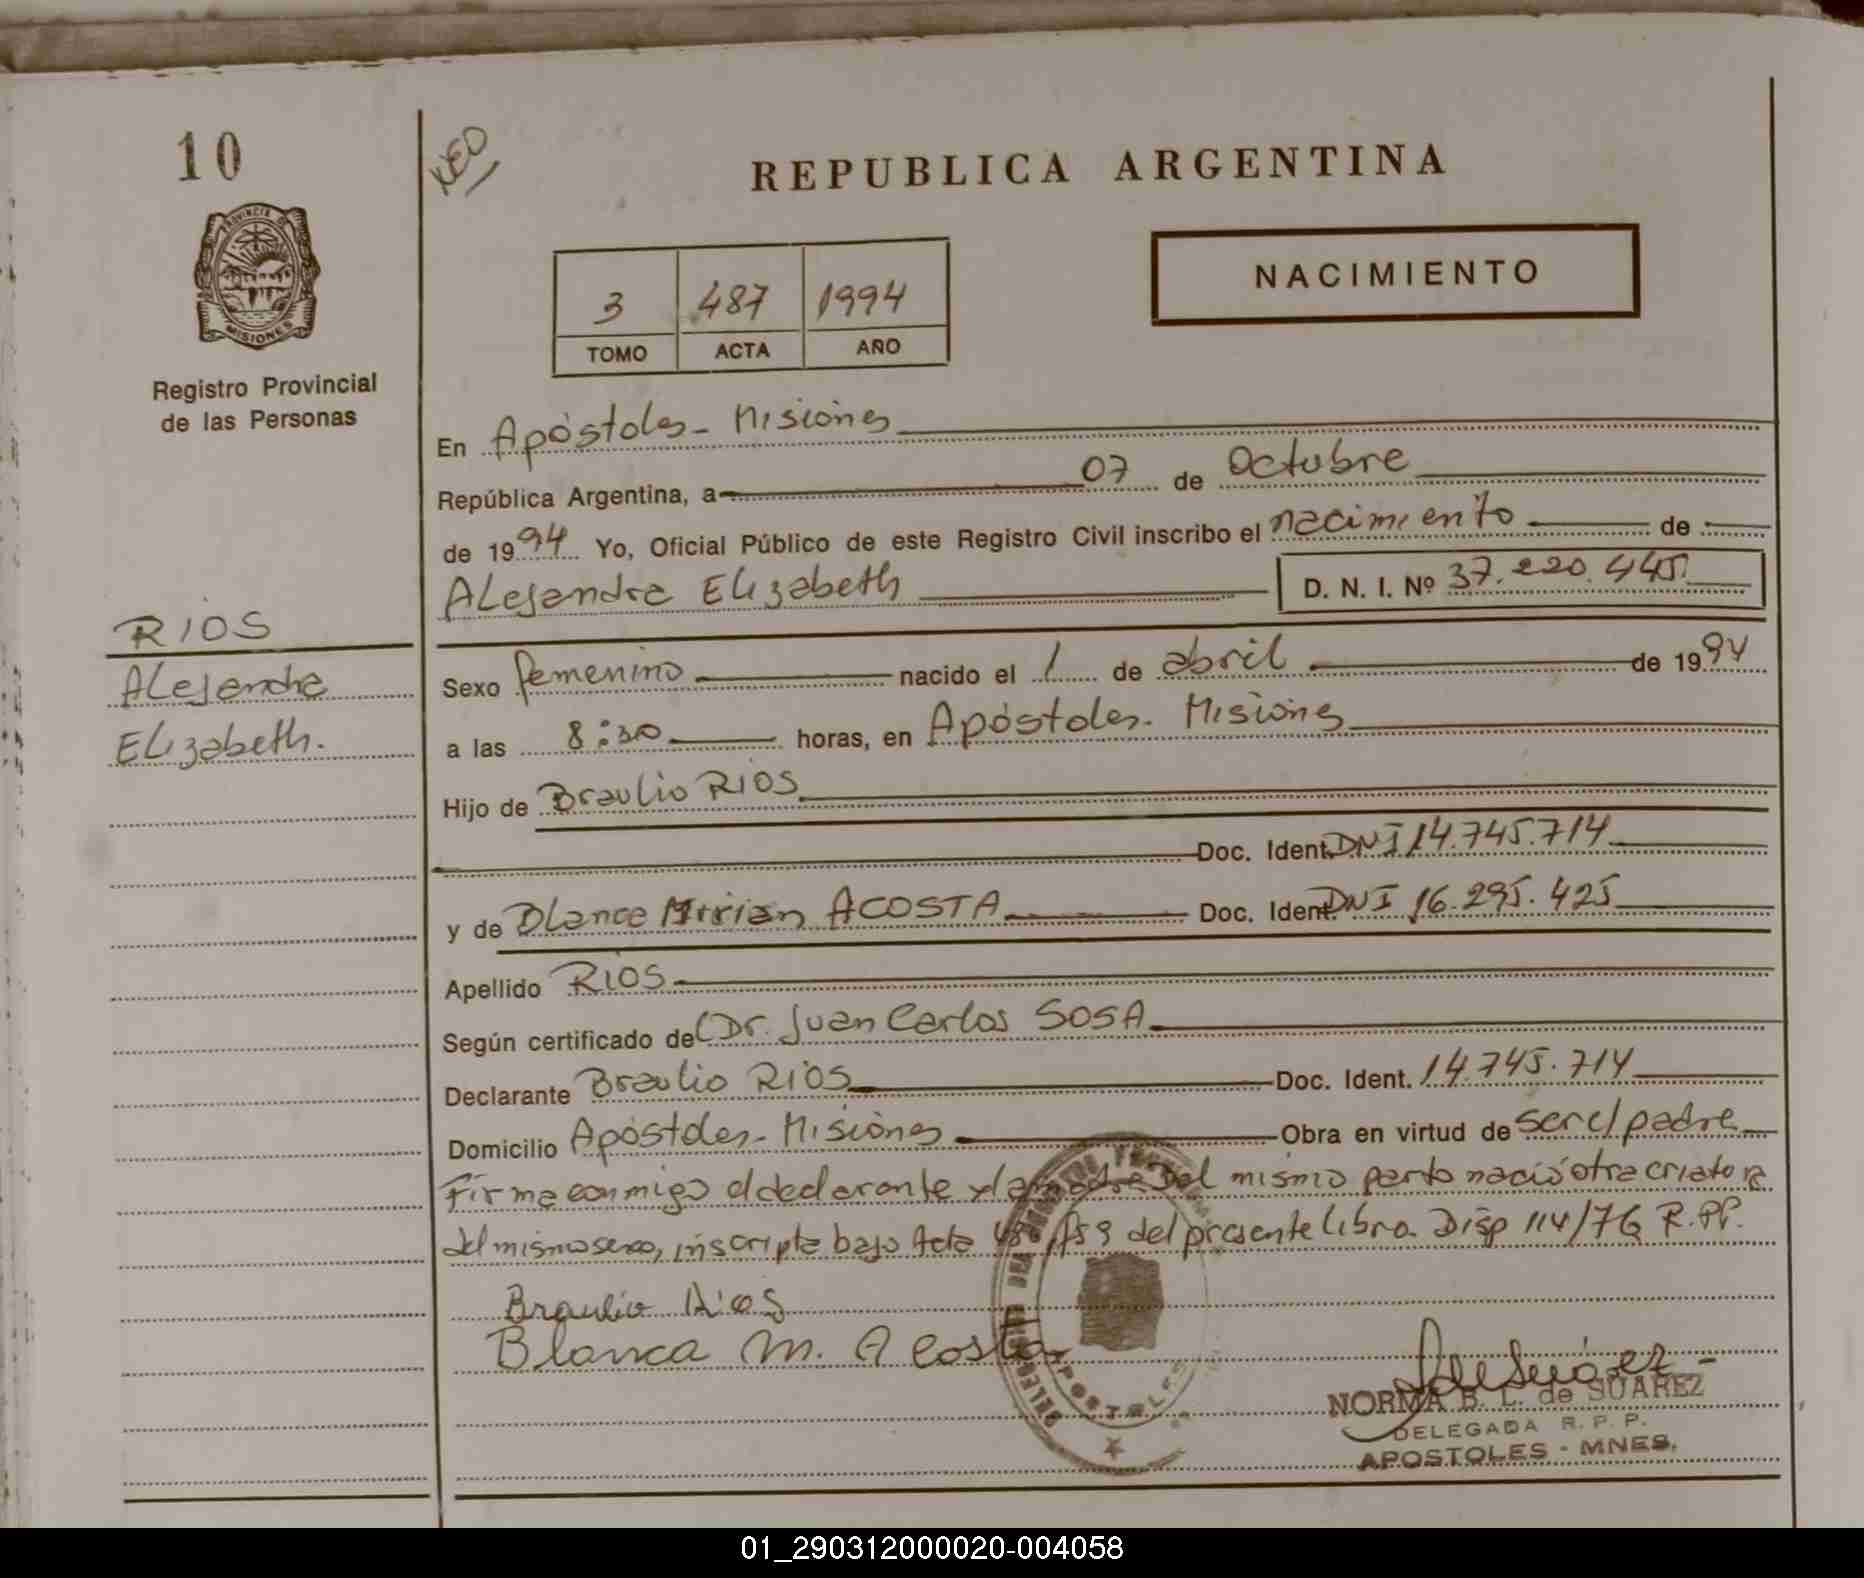 10
NEO
REPUBLICA ARGENTINA
PROVINCIA DE
MISIONES
Registro Provincial
de las Personas
NACIMIENTO
3 487 1994
TOMO ACTA AÑO
En Apóstoles - Misiones
República Argentina, a 07 de Octubre
de 1994 Yo, Oficial Público de este Registro Civil inscribo el nacimiento de
Alejandra Elizabeth D. N. I. Nº 37.220.445
RIOS
Alejandra
Elizabeth.
Sexo femenino nacido el 1 de abril de 1994
a las 8:30 horas, en Apóstoles - Misiones
Hijo de Braulio RIOS
Doc. Ident. DNI 14.745.714
y de Blanca Mirian ACOSTA Doc. Ident. DNI 16.295.425
Apellido RIOS
Según certificado de Dr. Juan Carlos SOSA
Declarante Braulio RIOS Doc. Ident. 14.745.714
Domicilio Apóstoles - Misiones Obra en virtud de ser el padre
Firma conmigo el declarante y la madre Del mismo parto nació otra criatura
del mismo sexo, inscripta bajo Acta 486 Fs 9 del presente libro. Disp 114/76 R.PP.
Braulio Rios
Blanca M. Acosta
APOSTOLES
NORMA B. L. de SUAREZ
DELEGADA R. P. P.
APOSTOLES - MNES.
01_290312000020-004058